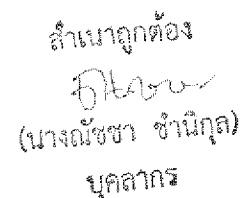 สำเนาถูกต้อง
(นางณัชชา ชำนิกุล)
บุคลากร